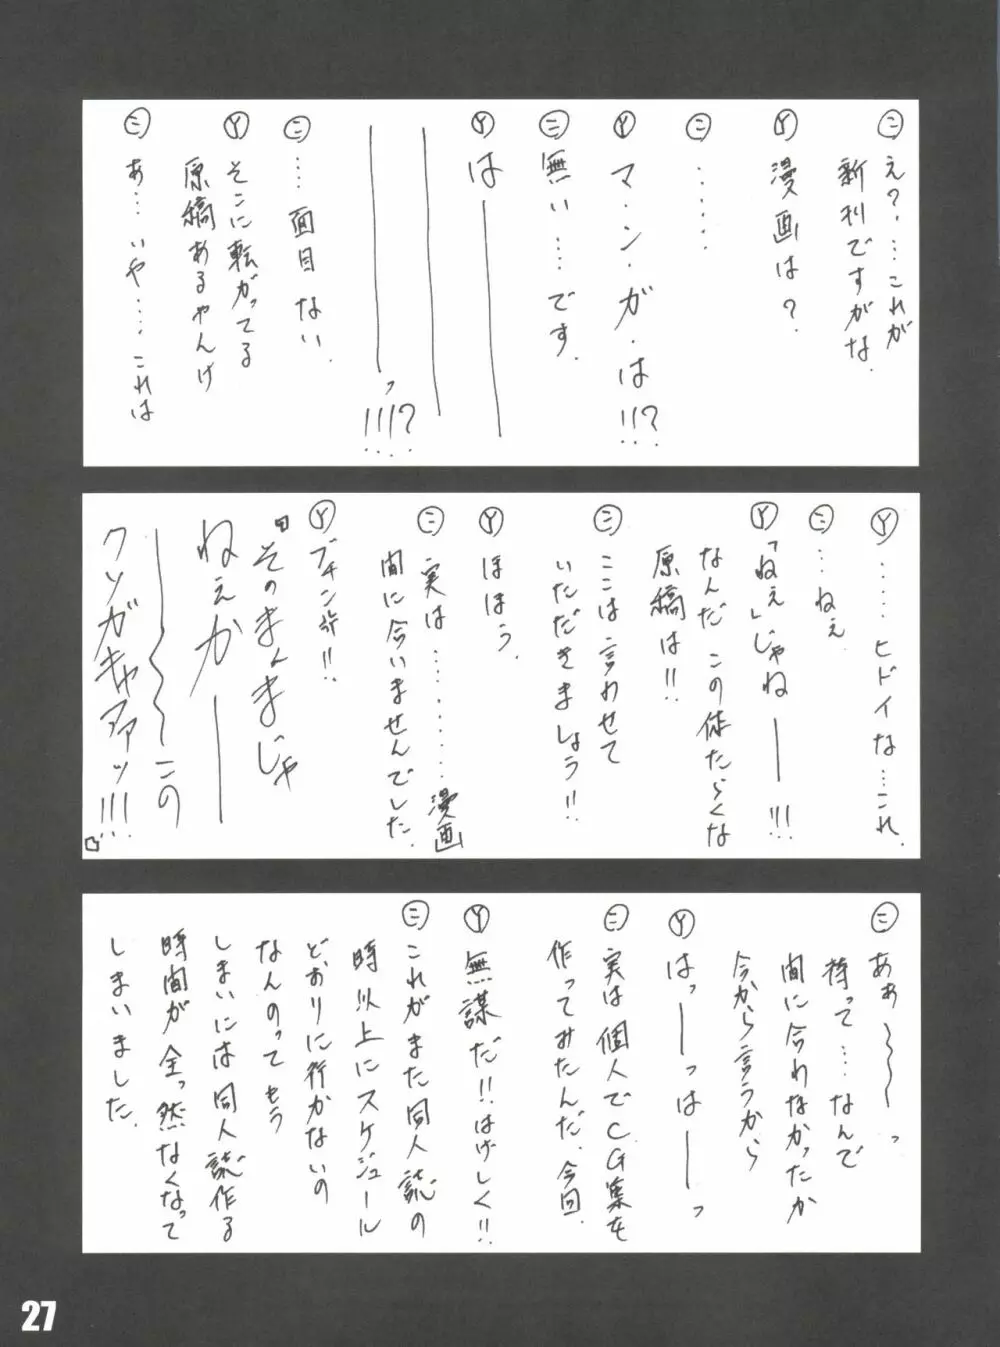 ㊁え?…これが
新刊ですがな.
Ⓨ漫画は?
㊁……
Ⓨマ・ン・ガ・は!!?
㊁無い……です.
Ⓨは───
─────
─────っ!!!?
㊁……面目ない.
Ⓨそこに転がってる
原稿あるやんけ
㊁あ……いや……これは
Ⓨ……ヒドイな…これ.
㊁…ねぇ
Ⓨ「ねぇ」じゃね───!!!
なんだ この体たらくな
原稿は!!
㊁ここは言わせて
いただきましょう!!
Ⓨほほう.
㊁実は…………漫画
間に合いませんでした.
Ⓨブチン!!
『そのまんまじゃ
ねぇか───
───この
クソガキャアァッ!!!』
㊁あぁ~~~っ
待って……なんで
間に合わなかったか
今から言うから
Ⓨはっ──っは──っ
㊁実は個人でCG集を
作ってみたんだ.今回.
Ⓨ無謀だ!!はげしく!!
㊁これがまた同人誌の
時以上にスケジュール
どおりに行かないの
なんのって もう
しまいには同人誌作る
時間が全っ然なくなって
しまいました.
27